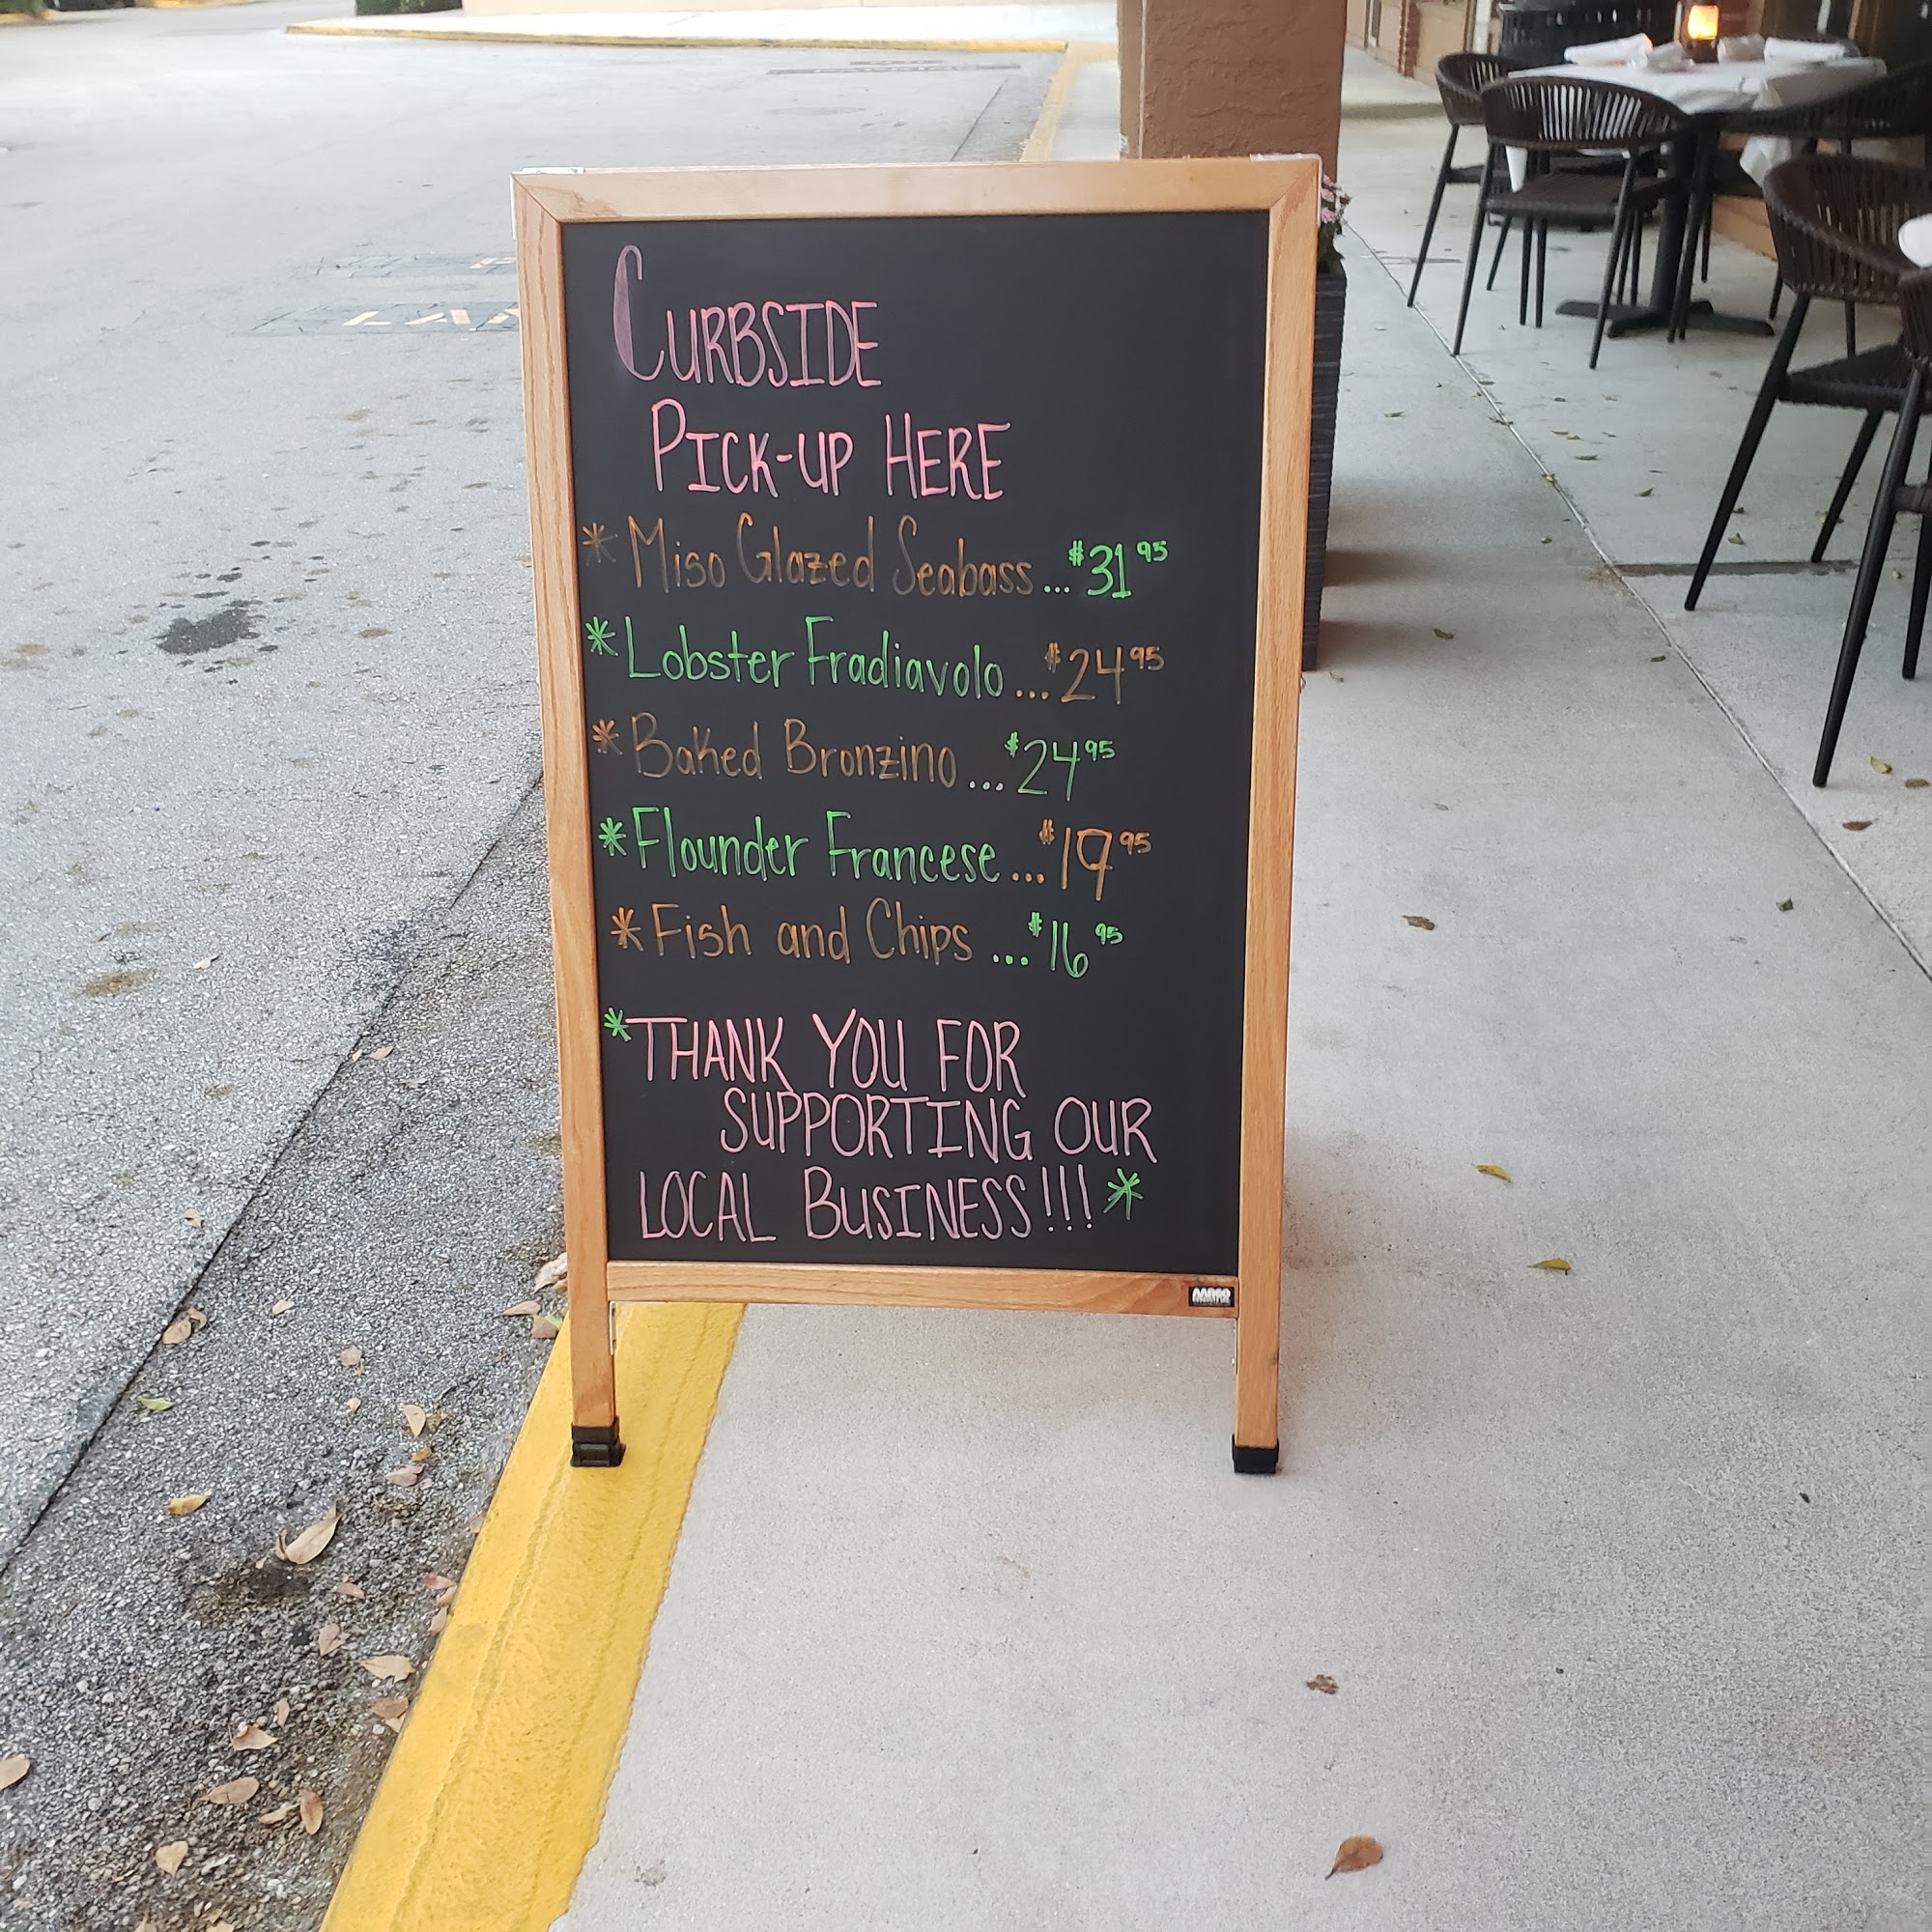 CURBSIDE
PICK-UP HERE
* Miso Glazed Seabass...$31 95
* Lobster Fradiavolo...$24 95
* Baked Bronzino...$24 95
* Flounder Francese...$19 95
* Fish and Chips...$16 95
* THANK YOU FOR
SUPPORTING OUR
LOCAL BUSINESS!!! *
AARCO